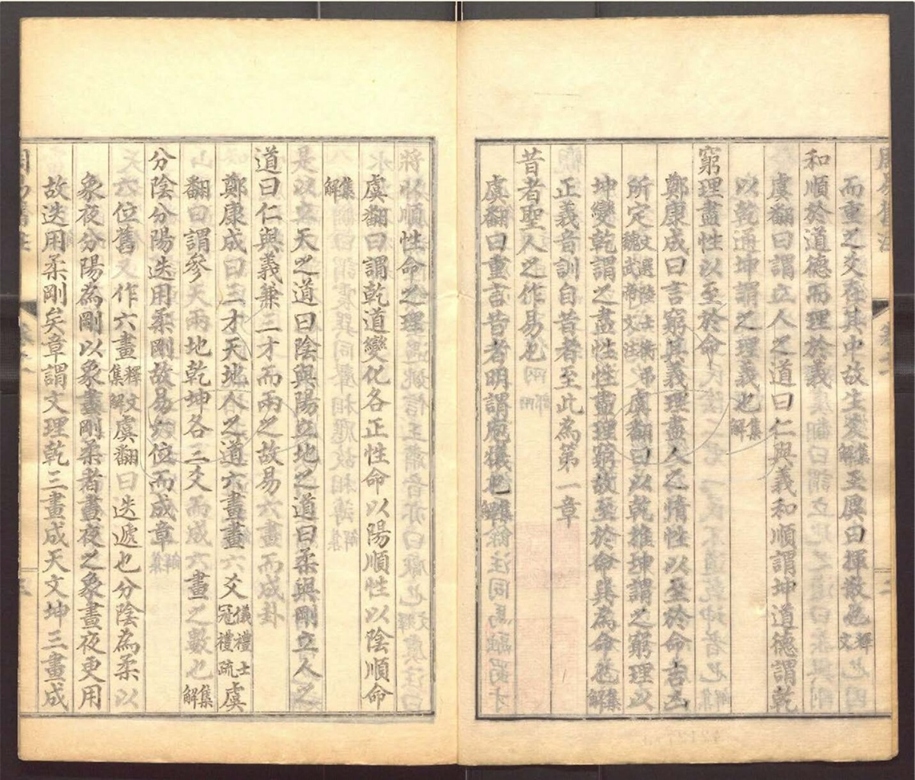 而重之爻在其中故生爻集解王廙曰揮散也釋文
和順於道德而理於義
虞翻曰謂立人之道曰仁與義和順謂坤道德謂乾
以乾通坤謂之理義也集解
窮理盡性以至於命
鄭康成曰言窮其義理盡人之情性以至於命吉凶
所定文選陸士衡弔魏武帝文注虞翻曰以乾推坤謂之窮理以
坤變乾謂之盡性性盡理窮故至於命巽為命也集解
正義音訓自昔者至此為第一章
昔者聖人之作易也
虞翻曰重言昔者明謂庖犧也集解
將以順性命之理
虞翻曰謂乾道變化各正性命以陽順性以陰順命
集解
是以立天之道曰陰與陽立地之道曰柔與剛立人之
道曰仁與義兼三才而兩之故易六畫而成卦
鄭康成曰三才天地人之道六畫畫六爻儀禮士冠禮疏虞
翻曰謂參天兩地乾坤各三爻而成六畫之數也集解
分陰分陽迭用柔剛故易六位而成章
六位舊又作六畫釋文集解虞翻曰迭遞也分陰為柔以
象夜分陽為剛以象晝剛柔者晝夜之象晝夜更用
故迭用柔剛矣章謂文理乾三畫成天文坤三畫成